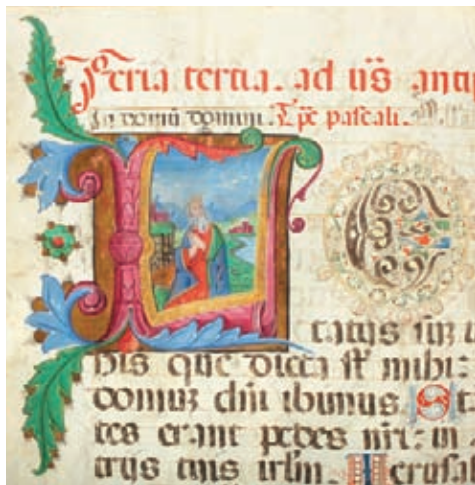 Feria tertia. ad vs̄ antip
In domū domini. Tp̄e pascali.
L E
tatus sū i
his que dicta sūt mihi:
domuz dn̄i ibimus. Stā
tes erant pedes nr̄i: in
trijs tuis irl̄m. Jerusal